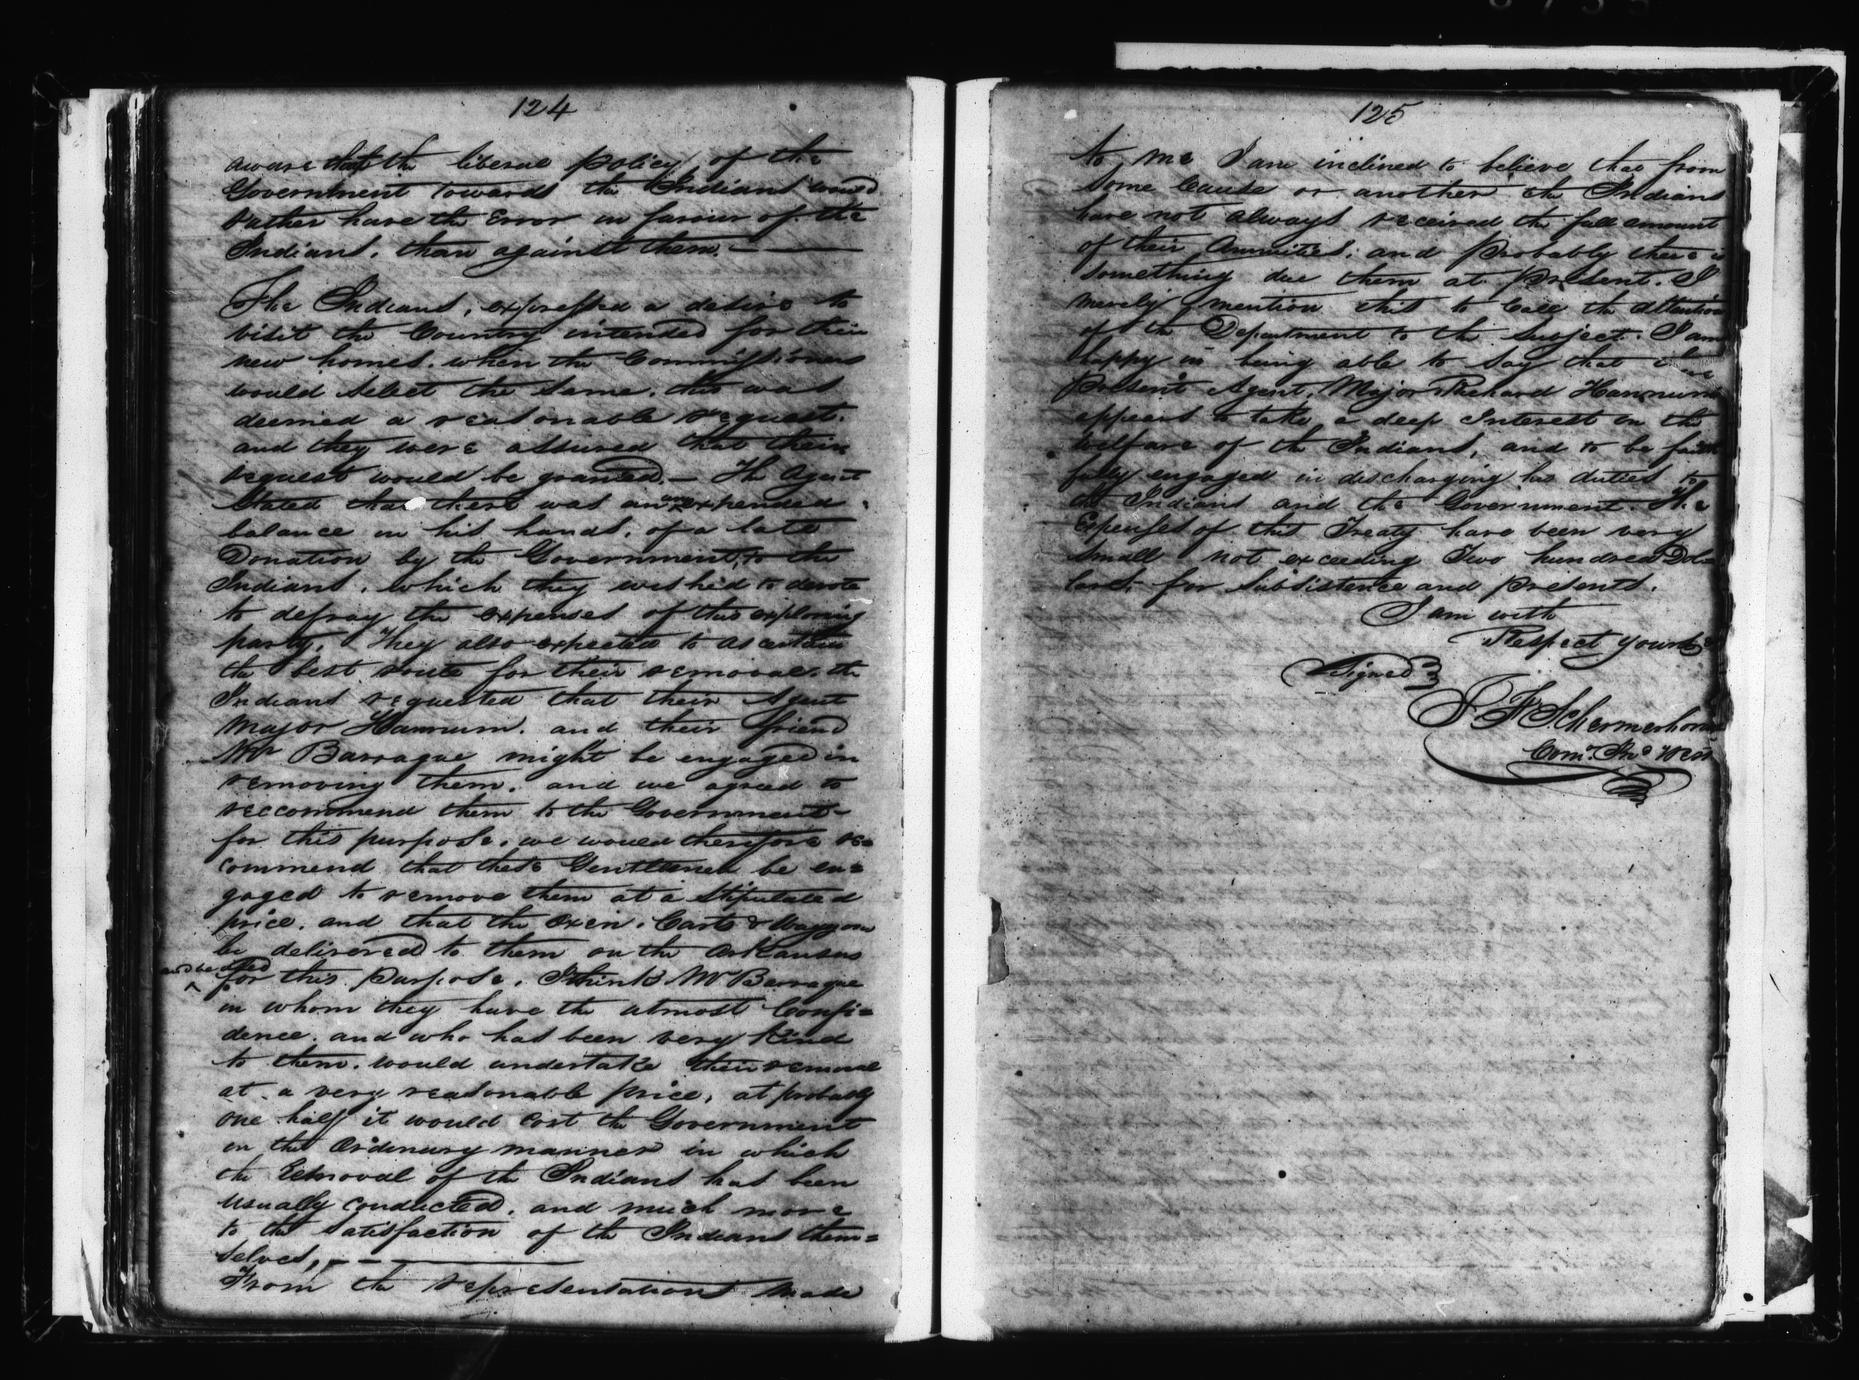 124
aware that the liberal policy of the
Government towards the Indians would
rather have the Error in favour of the
Indians, than against them. —
The Indians, expressed a desire to
visit the Country intended for their
new homes, when the Commissioners
would select the same. this was
deemed a reasonable request.
and they were assured that their
request would be granted. — The Agent
Stated that there was an unexpended
balance in his hands, of a late
Donation by the Government, to the
Indians, which they wished to devote
to defray the expenses of this exploring
party. They also expected to ascertain
the best route for their removal. the
Indians requested that their Agent
Major Hannum, and their friend
Mr Barraque might be engaged in
removing them. and we agreed to
reccommend them to the Government
for this purpose, we would therefore re=
commend that these Gentlemen be en=
gaged to remove them at a Stipulated
price, and that the Oxen, Carts & Waggons
be delivered to them on the Arkansas
and be used
for this purpose, I think Mr Barraque
in whom they have the utmost Confi=
dence, and who has been very kind
to them, would undertake their removal
at a very reasonable price, at probably
one half it would cost the Government
in the Ordinary manner in which
the Removal of the Indians has been
usually conducted, and much more
to the satisfaction of the Indians them=
selves, — —
From the representations made
125
to me I am inclined to believe that from
some Cause or another the Indians
have not always received the full amount
of their Annuities; and probably there is
something due them at present. I
merely mention this to Call the attention
of the Department to the subject. I am
happy in being able to say that the
Present Agent, Major Richard Hannum
appears to take a deep Interest in the
welfare of the Indians, and to be faith
fully engaged in discharging his duties to
the Indians and the Government. The
Expenses of this Treaty have been very
small not exceeding Two hundred Dol=
lars, for subsistence and presents.
I am with
Respect yours &
Signed
J. F. Schermerhorn
Comr. Ind West